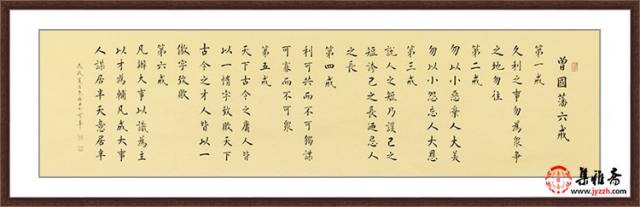 曾國藩六戒
第一戒
久利之事勿為眾爭
之地勿往
第二戒
勿以小惡棄人大美
勿以小怨忘人大恩
第三戒
說人之短乃護己之
短誇己之長迺忌人
之長
第四戒
利可共而不可獨謀
可寡而不可眾
第五戒
天下古今之庸人皆
以一惰字致敗天下
古今之才人皆以一
傲字致敗
第六戒
凡辦大事以識為主
以才為輔凡成大事
人謀居半天意居半
集雅斋
www.jyzzh.com